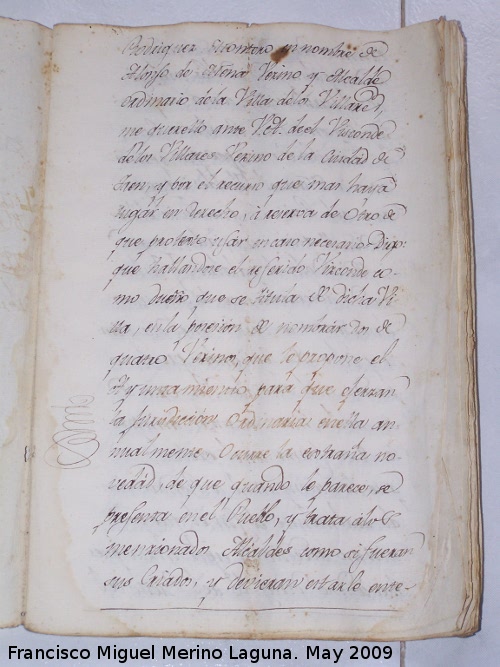 Rodriguez Montero en nombre de
Alonso de Mena Vezino y Alcalde
ordinario de la Villa de los Villares,
me querello ante V.A. de el Visconde
de los Villares Vezino de la Ciudad de
Jaen, y por el recurso que mas haya
lugar en derecho, à reserva de otro de
que protexto usar en caso necesario: Digo:
que hallandose el referido Vizconde co-
mo Dueño que se titula de dicha Vi-
lla, en la posesion de nombrar dos de
quatro Vezinos, que le propone el
Ayuntamiento para que exerzan
la Jurisdiccion ordinaria en ella an-
nualmente. Ocurre la extraña no-
vedad, de que quando le parece, se
presenta en el Pueblo, y trata à los
mencionados Alcaldes como si fueran
sus Criados, y devieran estarle ente-
Francisco Miguel Merino Laguna. May 2009